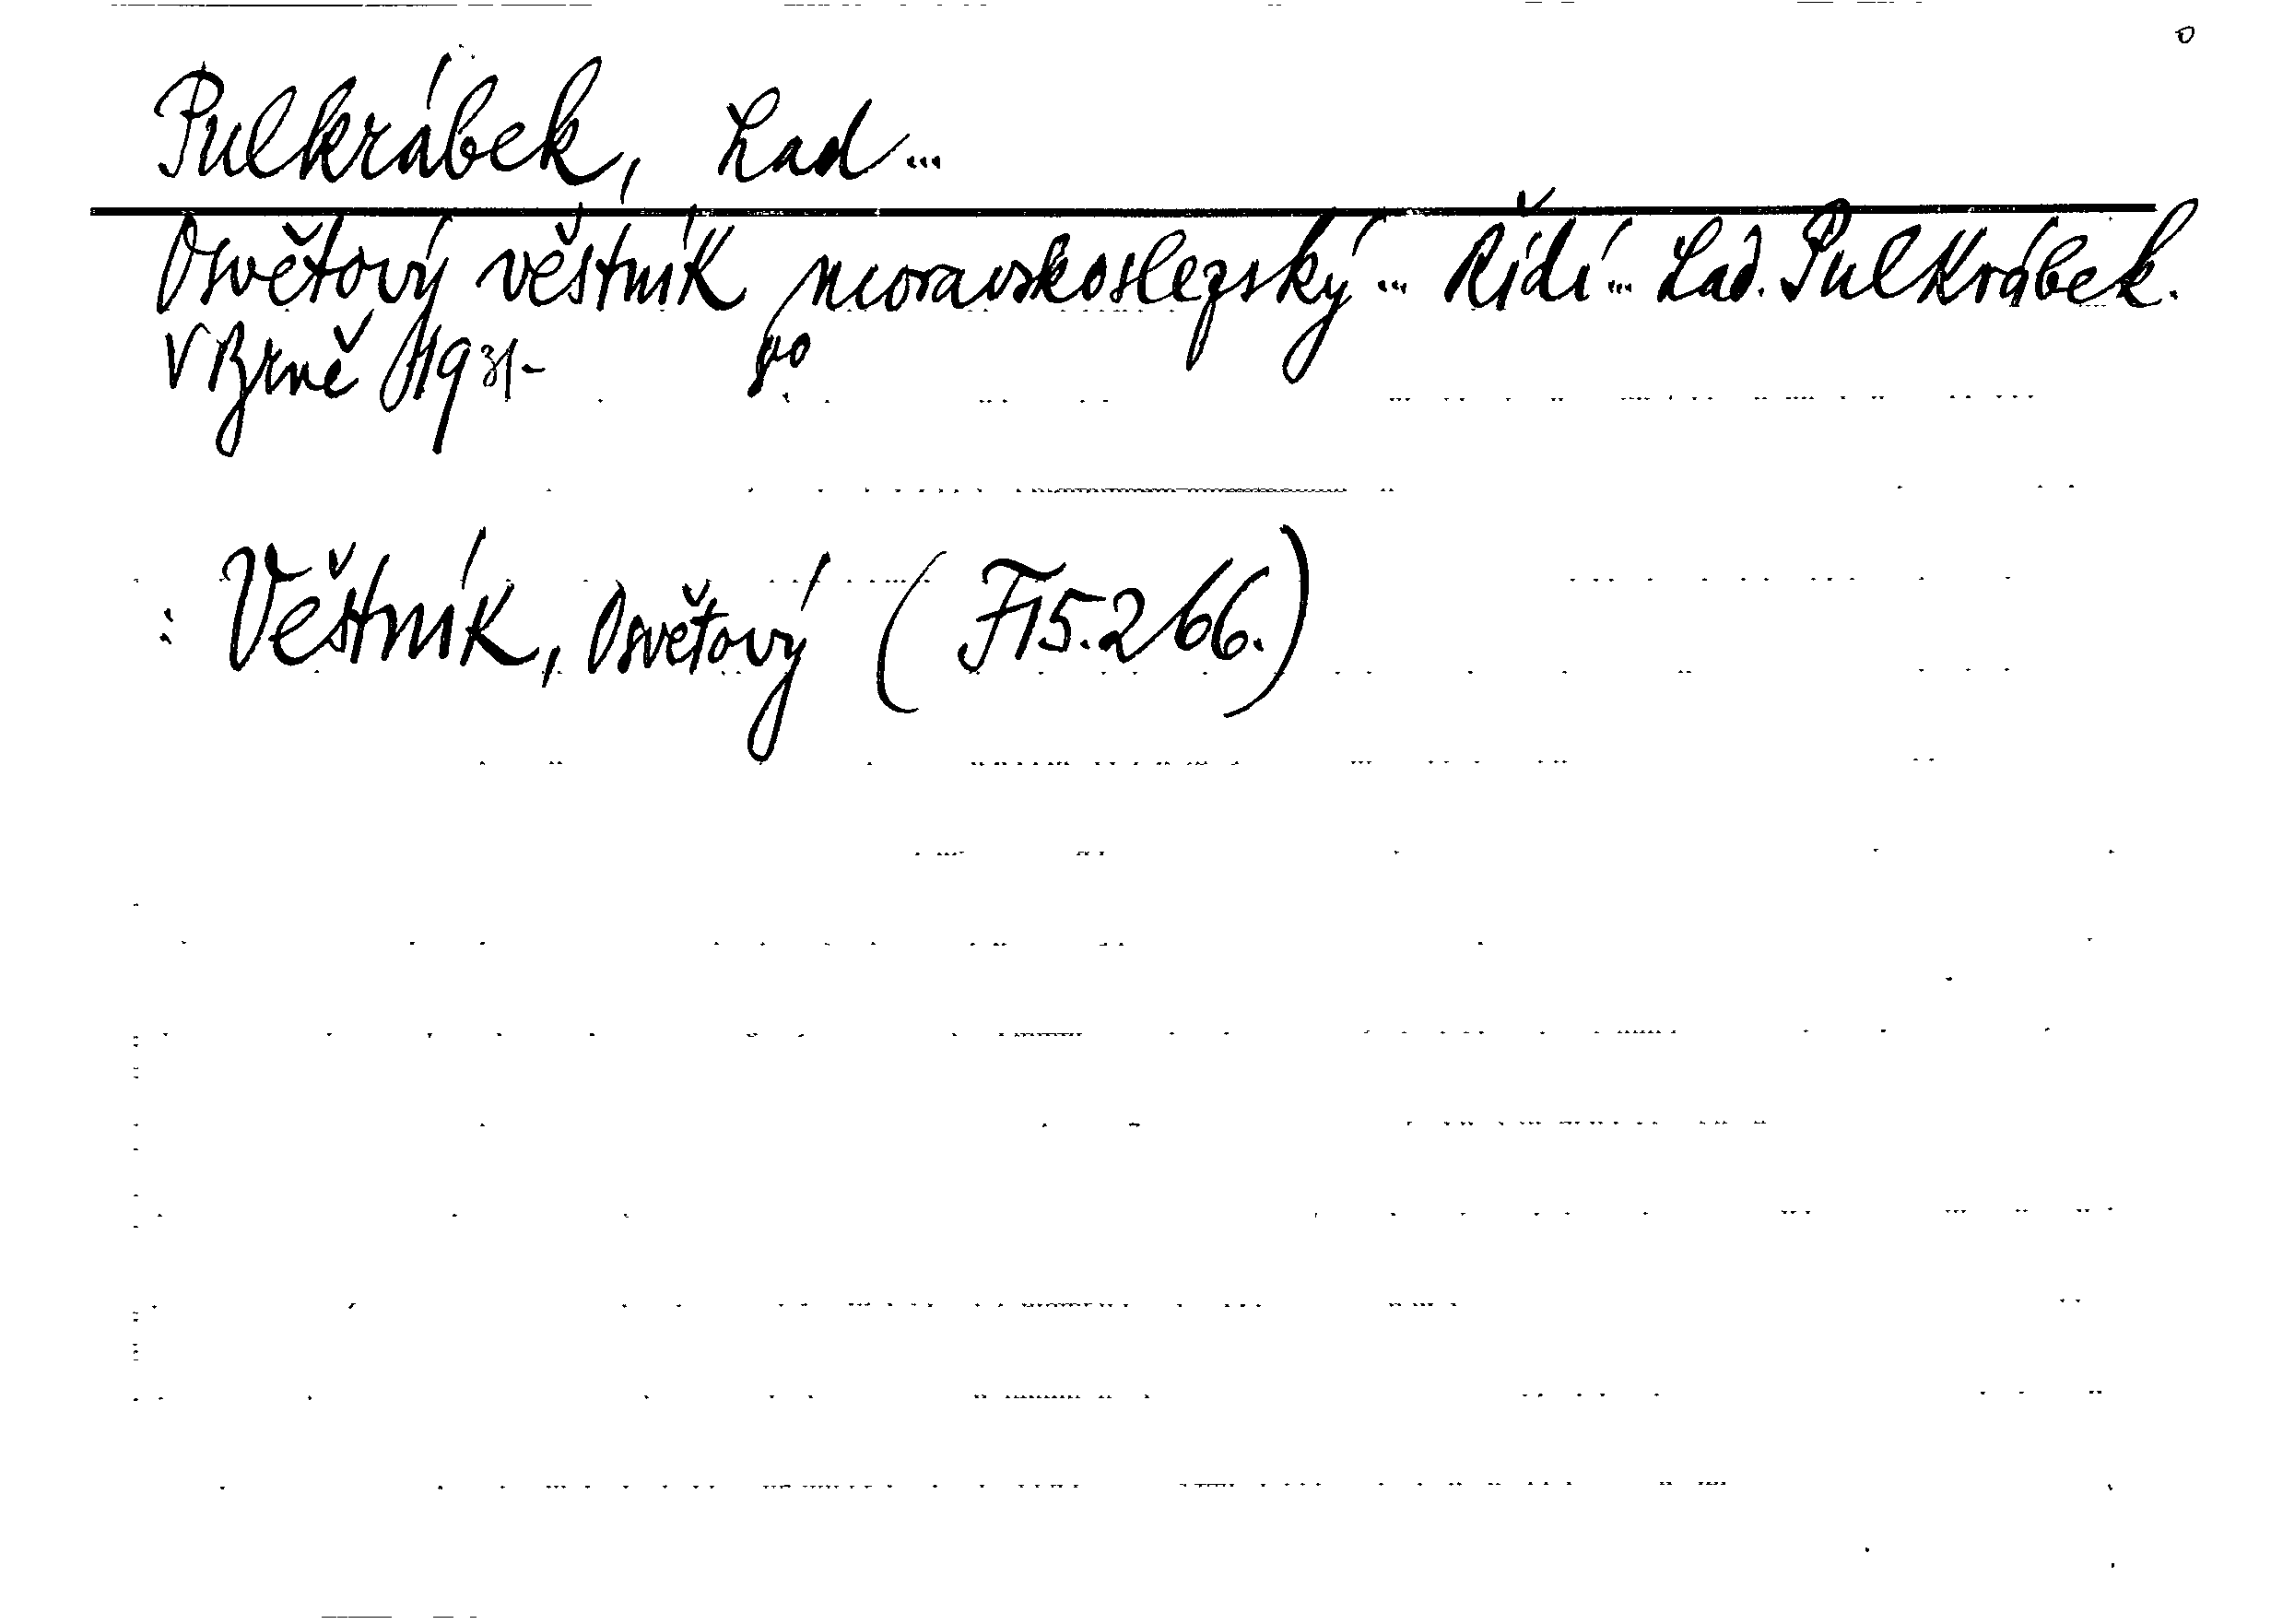 Pulkrábek, Lad...
Osvětový věstník moravskoslezský... Řídí... Lad. Pulkrábek.
V Brně 1931- 8°
: Věstník, Osvětový (F15.266.)